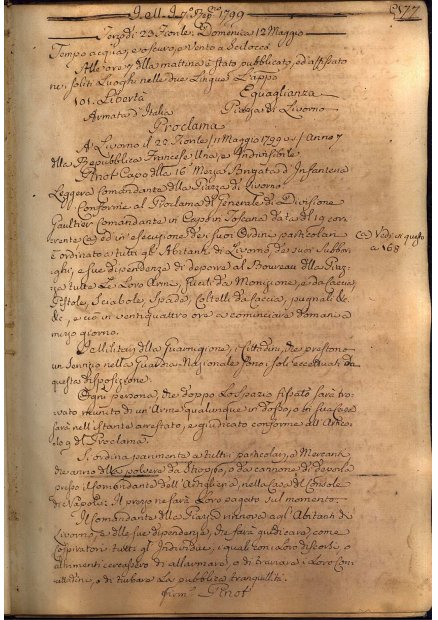 1799
577
23. Fiorile. Domenica 12 Maggio
Tempo acquaz. e oscuro, e Vento a Scilocco
Alle ore 7 della mattina è stato pubblicato, ed affissato
ne' soliti Luoghi nelle due Lingue L'app.º
101. Libertà Eguaglianza
Armata d'Italia Piazza di Livorno
Proclama
A Livorno il 22 Fiorile 11 Maggio 1799 Anno 7
della Repubblica Francese Una, e Indivisibile
Pinot Capo della 16 Mezza Brigata d'Infanteria
Leggera Comandante della Piazza di Livorno
Conforme al Proclama di Generale di Divisione
Gaultier Comandante in Capo in Toscana data del 19 cor-
rente (a) ed in esecuzione de' suoi Ordini particolari
(a) Vedi in questo
a 168
è ordinato a tutti gli Abitanti di Livorno, de' suoi Subbor-
ghi, e sue dipendenze di deporre al Boureau della Piaz-
za tutte le Loro Armi, Fucili da Munizione, e da Caccia,
Pistole, Sciabole, Spade, Coltelli da Caccia, pugnali &c.
&c., e ciò in ventiquattro ore a cominciare domani a
mezzo giorno.
I Militari della Guarnigione, i Cittadini, che prestono
un servizio nella Guardia Nazionale sono i soli eccettuati da
questa disposizione.
Ogni persona, che doppo Lo spazio fissato sarà tro-
vato munito di un'Arme qualunque in dosso, o in sua casa
sarà nell'istante arrestato, e giudicato conforme all'Artico-
lo 9 del Proclama.
Si ordina parimente a tutti i particolari, o Mercanti,
che anno della polvere da Stioppo, o da cannone di deporla
presso il Comandante dell'Artiglieria, nella Casa del Console
di Napoli: Il prezzo ne sarà Loro pagato sul momento.
Il Comandante della Piazza rinnova agl'Abitanti di
Livorno, e delle sue dipendenze, che farà giudicare, come
Cospiratori tutti gl'Individui, i quali con i Loro discorsi, o
altrimenti cercassero di allarmare, o di traviare i Loro Conci-
ttadini, o di turbare La pubblica tranquillità.
firm.º Pinot